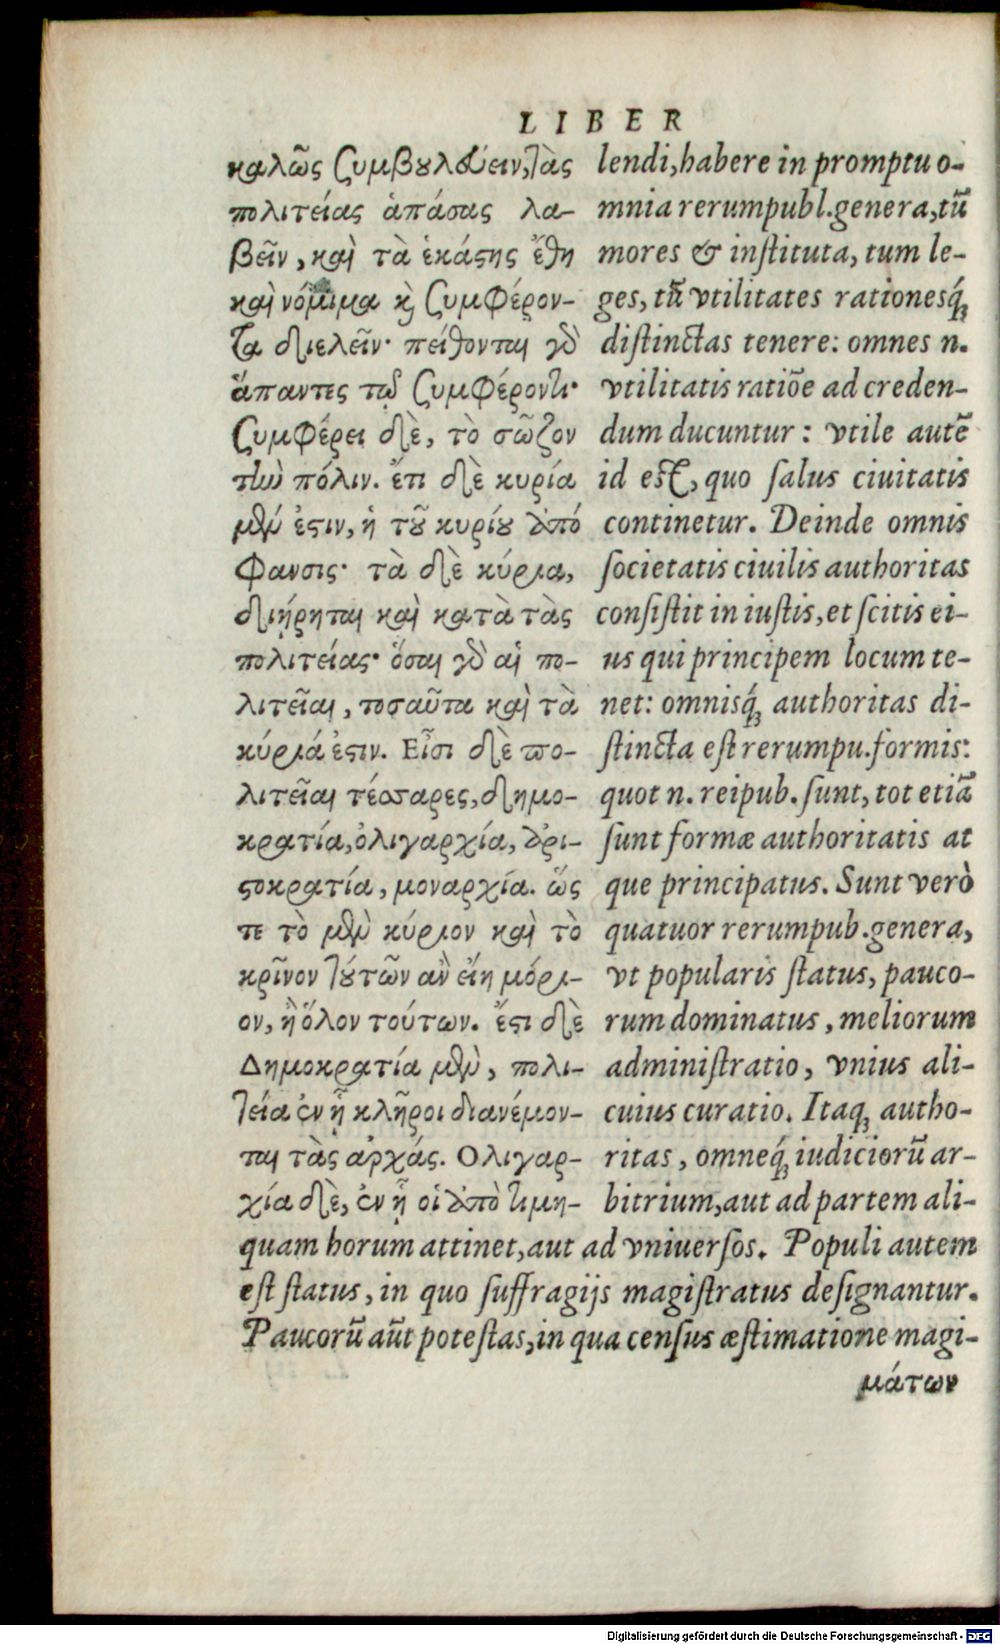 LIBER
καλῶς ζυμβουλεύειν, τὰς
πολιτείας ἁπάσας λα-
βεῖν, καὶ τὰ ἑκάστης ἔθη
καὶ νόμιμα κỳ ζυμφέρον-
τα διελεῖν· πείθονται γὰρ
ἅπαντες τῷ ζυμφέροντι·
ζυμφέρει δὲ, τὸ σῶζον
τὴν πόλιν. ἔτι δὲ κυρία
μὲν ἐστιν, ἡ τοῦ κυρίου ἀπό
φανσις· τὰ δὲ κύρια,
διῄρηται καὶ κατὰ τὰς
πολιτείας· ὅσαι γὰρ αἱ πο-
λιτεῖαι, τοσαῦτα καὶ τὰ
κύριά ἐστιν. Εἶσι δὲ πο-
λιτεῖαι τέσσαρες, δημο-
κρατία, ὀλιγαρχία, ἀρι-
στοκρατία, μοναρχία. ὥς
τε τὸ μὲν κύριον καὶ τὸ
κρῖνον τούτων ἂν εἴη μόρι-
ον, ἢ ὅλον τούτων. ἔστι δὲ
Δημοκρατία μὲν, πολι-
τεία ἐν ᾗ κλῆροι διανέμον-
ται τὰς ἀρχάς. Ολιγαρ-
χία δὲ, ἐν ᾗ οἱ ἀπὸ τιμη-
lendi, habere in promptu o-
mnia rerumpubl. genera, tū
mores & instituta, tum le-
ges, tū vtilitates rationesq́;
distinctas tenere: omnes n.
vtilitatis ratiōe ad creden-
dum ducuntur: vtile autē
id est, quo salus ciuitatis
continetur. Deinde omnis
societatis ciuilis authoritas
consistit in iustis, et scitis ei-
us qui principem locum te-
net: omnisq́; authoritas di-
stincta est rerumpu. formis:
quot n. reipub. sunt, tot etiā
sunt formæ authoritatis at
que principatus. Sunt verò
quatuor rerumpub. genera,
vt popularis status, pauco-
rum dominatus, meliorum
administratio, vnius ali-
cuius curatio. Itaq; autho-
ritas, omneq́; iudiciorū ar-
bitrium, aut ad partem ali-
quam horum attinet, aut ad vniuersos. Populi autem
est status, in quo suffragijs magistratus designantur.
Paucorū aūt potestas, in qua census æstimatione magi-
μάτων
Digitalisierung gefördert durch die Deutsche Forschungsgemeinschaft - DFG